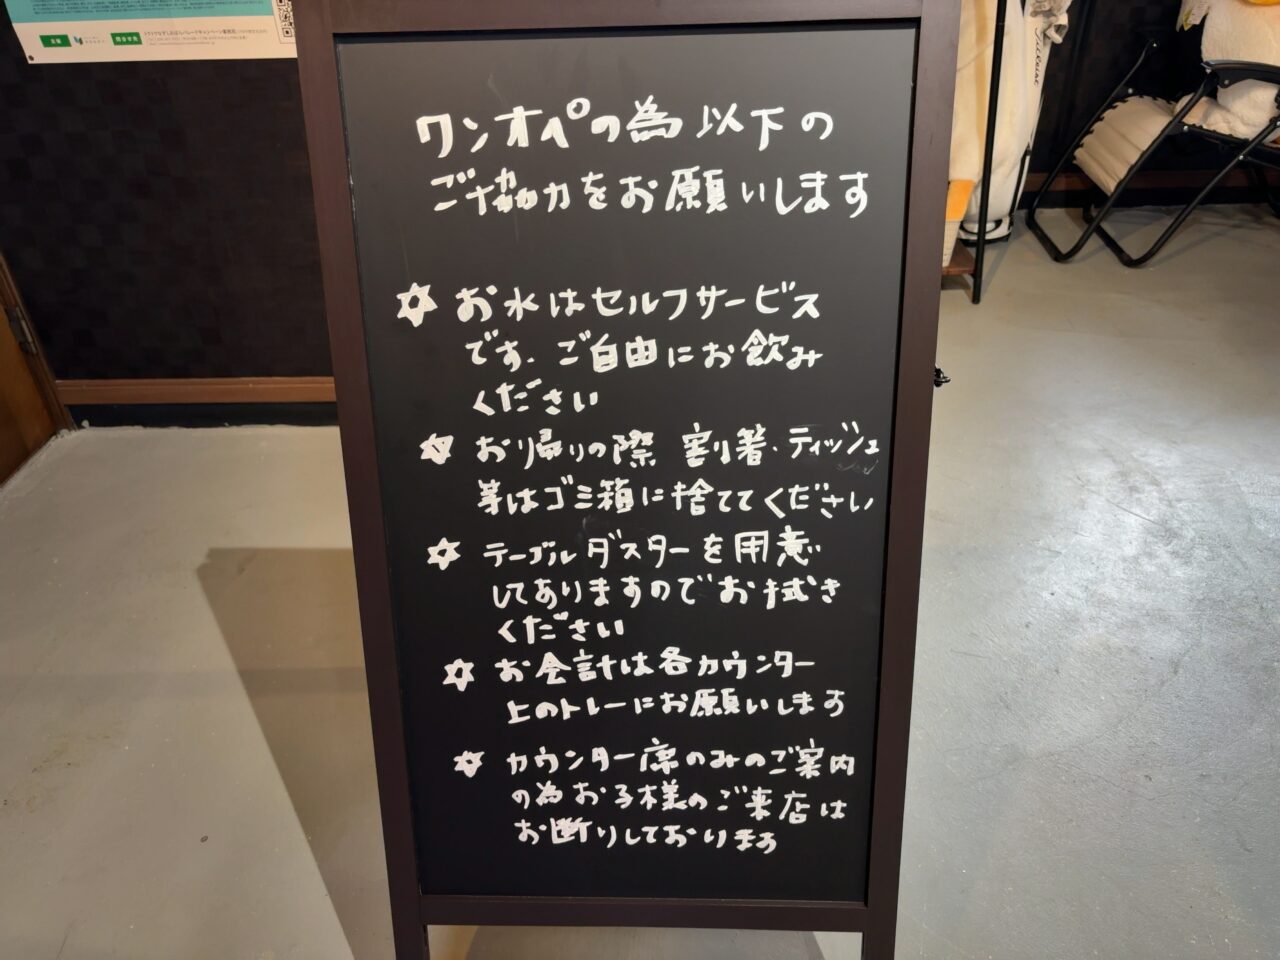 主催
問合せ先
ワンオペの為以下の
ご協力をお願いします
お水はセルフサービス
です、ご自由にお飲み
ください
お帰りの際 割り箸・ティッシュ
等はゴミ箱に捨ててください
テーブルダスターを用意
してありますのでお拭き
ください
お会計は各カウンター
上のトレーにお願いします
カウンター席のみのご案内
の為お子様のご来店は
お断りしております